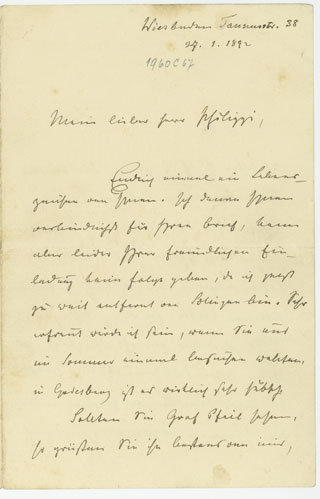 Wiesbaden Taunusstr. 38
27. 1. 1892
1960 C 67
Mein lieber Herr Philippi,
Endlich einmal ein Lebens-
zeichen von Ihnen. Ich danke Ihnen
verbindlichst für Ihren Brief, kann
aber leider Ihrer freundlichen Ein-
ladung keine Folge geben, da ich jetzt
zu weit entfernt von Solingen bin. Sehr
erfreut würde ich sein, wenn Sie uns
im Sommer einmal besuchen wollten,
in Godesberg ist es wirklich sehr hübsch.
Sollten Sie Graf Pfeil sehen,
so grüßen Sie ihn bestens von mir,